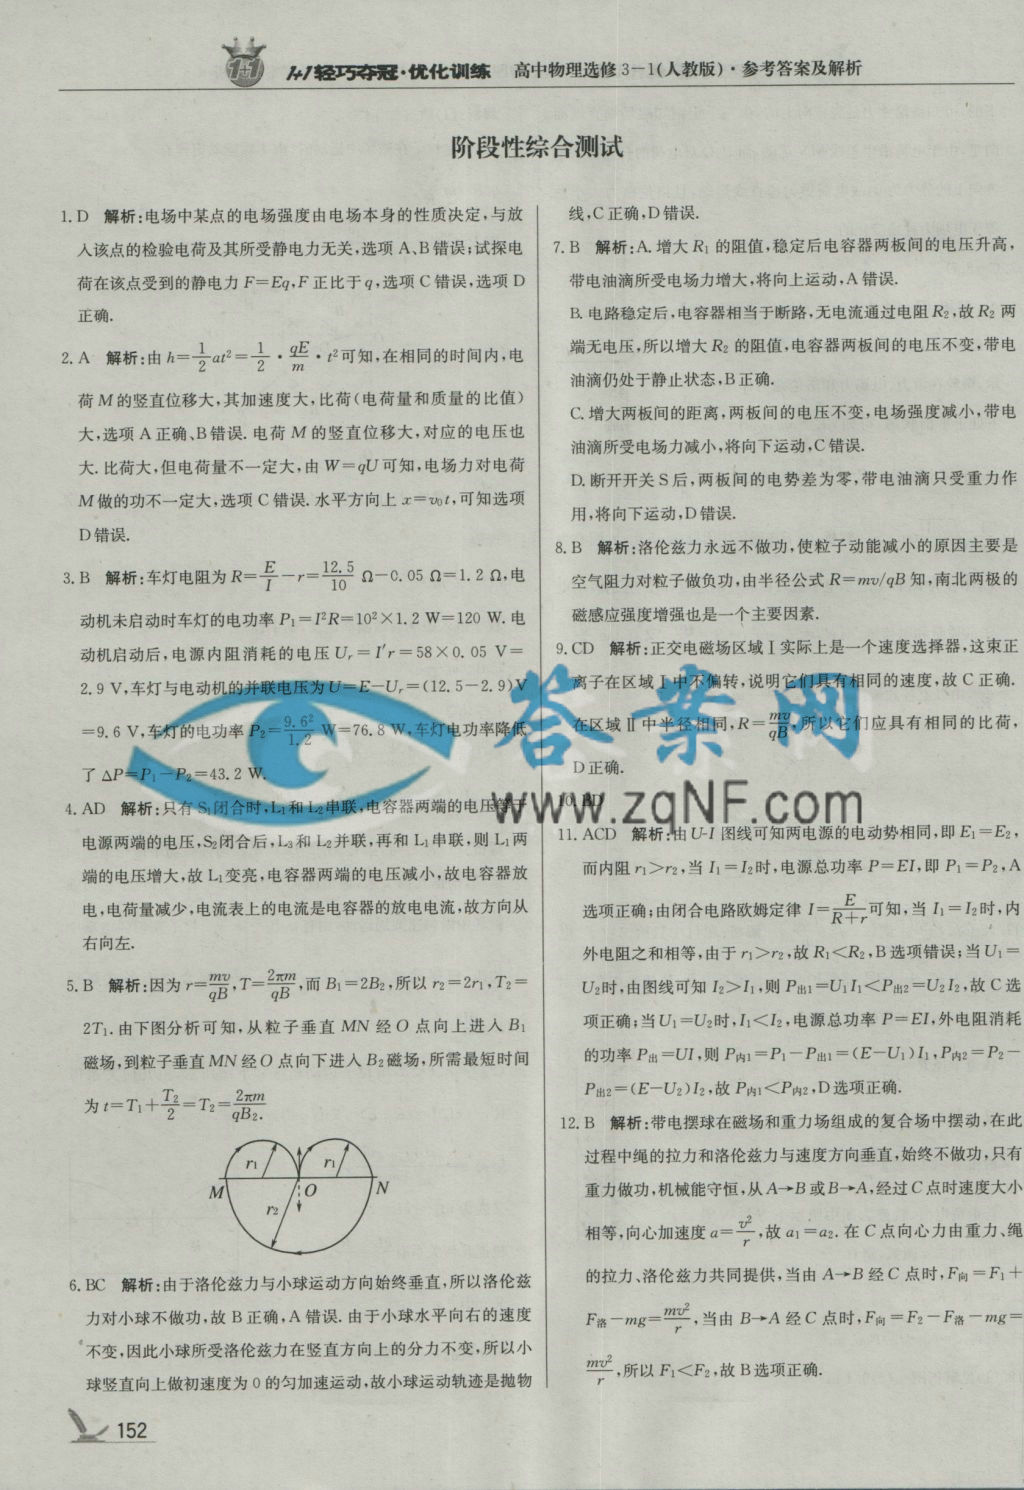 1+1轻巧夺冠·优化训练 高中物理选修3-1(人教版)·参考答案及解析
阶段性综合测试
1. D 解析:电场中某点的电场强度由电场本身的性质决定,与放
入该点的检验电荷及其所受静电力无关,选项A、B错误;试探电
荷在该点受到的静电力F=Eq,F正比于q,选项C错误,选项D
正确.
2. A 解析:由h=1/2at²=1/2·qE/m·t²可知,在相同的时间内,电
荷M的竖直位移大,其加速度大,比荷(电荷量和质量的比值)
大,选项A正确、B错误.电荷M的竖直位移大,对应的电压也
大.比荷大,但电荷量不一定大,由W=qU可知,电场力对电荷
M做的功不一定大,选项C错误.水平方向上x=v₀t,可知选项
D错误.
3. B 解析:车灯电阻为R=E/I-r=12.5/10 Ω-0.05 Ω=1.2 Ω,电
动机未启动时车灯的电功率P₁=I²R=10²×1.2 W=120 W.电
动机启动后,电源内阻消耗的电压Uᵣ=I′r=58×0.05 V=
2.9 V,车灯与电动机的并联电压为U=E-Uᵣ=(12.5-2.9)V
=9.6 V,车灯的电功率P₂=9.6²/1.2 W=76.8 W,车灯电功率降低
了△P=P₁-P₂=43.2 W.
4. AD 解析:只有S₁闭合时,L₁和L₂串联,电容器两端的电压等于
电源两端的电压,S₂闭合后,L₃和L₂并联,再和L₁串联,则L₁两
端的电压增大,故L₁变亮,电容器两端的电压减小,故电容器放
电,电荷量减少,电流表上的电流是电容器的放电电流,故方向从
右向左.
5. B 解析:因为r=mv/qB,T=2πm/qB,而B₁=2B₂,所以r₂=2r₁,T₂=
2T₁.由下图分析可知,从粒子垂直MN经O点向上进入B₁
磁场,到粒子垂直MN经O点向下进入B₂磁场,所需最短时间
为t=T₁+T₂/2=T₂=2πm/qB₂.
r₁ r₁
M O N
r₂
6. BC 解析:由于洛伦兹力与小球运动方向始终垂直,所以洛伦兹
力对小球不做功,故B正确,A错误.由于小球水平向右的速度
不变,因此小球所受洛伦兹力在竖直方向上的分力不变,所以小
球竖直向上做初速度为0的匀加速运动,故小球运动轨迹是抛物
线,C正确,D错误.
7. B 解析:A.增大R₁的阻值,稳定后电容器两板间的电压升高,
带电油滴所受电场力增大,将向上运动,A错误.
B.电路稳定后,电容器相当于断路,无电流通过电阻R₂,故R₂两
端无电压,所以增大R₂的阻值,电容器两板间的电压不变,带电
油滴仍处于静止状态,B正确.
C.增大两板间的距离,两板间的电压不变,电场强度减小,带电
油滴所受电场力减小,将向下运动,C错误.
D.断开开关S后,两板间的电势差为零,带电油滴只受重力作
用,将向下运动,D错误.
8. B 解析:洛伦兹力永远不做功,使粒子动能减小的原因主要是
空气阻力对粒子做负功,由半径公式R=mv/qB知,南北两极的
磁感应强度增强也是一个主要因素.
9. CD 解析:正交电磁场区域Ⅰ实际上是一个速度选择器,这束正
离子在区域Ⅰ中不偏转,说明它们具有相同的速度,故C正确.
在区域Ⅱ中半径相同,R=mv/qB,所以它们应具有相同的比荷,
D正确.
10. BD
11. ACD 解析:由U-I图线可知两电源的电动势相同,即E₁=E₂,
而内阻r₁>r₂,当I₁=I₂时,电源总功率P=EI,即P₁=P₂,A
选项正确;由闭合电路欧姆定律I=E/(R+r)可知,当I₁=I₂时,内
外电阻之和相等,由于r₁>r₂,故R₁<R₂,B选项错误;当U₁=
U₂时,由图线可知I₂>I₁,则P出1=U₁I₁<P出2=U₂I₂,故C选
项正确;当U₁=U₂时,I₁<I₂,电源总功率P=EI,外电阻消耗
的功率P出=UI,则P内1=P₁-P出1=(E-U₁)I₁,P内2=P₂-
P出2=(E-U₂)I₂,故P内1<P内2,D选项正确.
12. B 解析:带电摆球在磁场和重力场组成的复合场中摆动,在此
过程中绳的拉力和洛伦兹力与速度方向垂直,始终不做功,只有
重力做功,机械能守恒,从A→B或B→A,经过C点时速度大小
相等,向心加速度a=v²/r,故a₁=a₂.在C点向心力由重力、绳
的拉力、洛伦兹力共同提供,当由A→B经C点时,F向=F₁+
F洛-mg=mv²/r,当由B→A经C点时,F向=F₂-F洛-mg=
mv²/r,所以F₁<F₂,故B选项正确.
答案网
www.zqNF.com
152